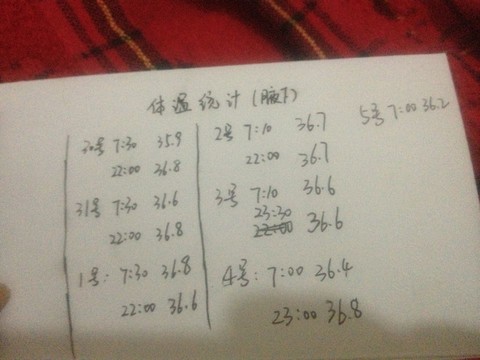 体温统计(腋下)
30号 7:30 35.9
22:00 36.8
31号 7:30 36.6
22:00 36.8
1号: 7:30 36.8
22:00 36.6
2号 7:10 36.7
22:00 36.7
3号 7:10 36.6
23:30
22:00 36.6
4号: 7:00 36.4
23:00 36.8
5号 7:00 36.2